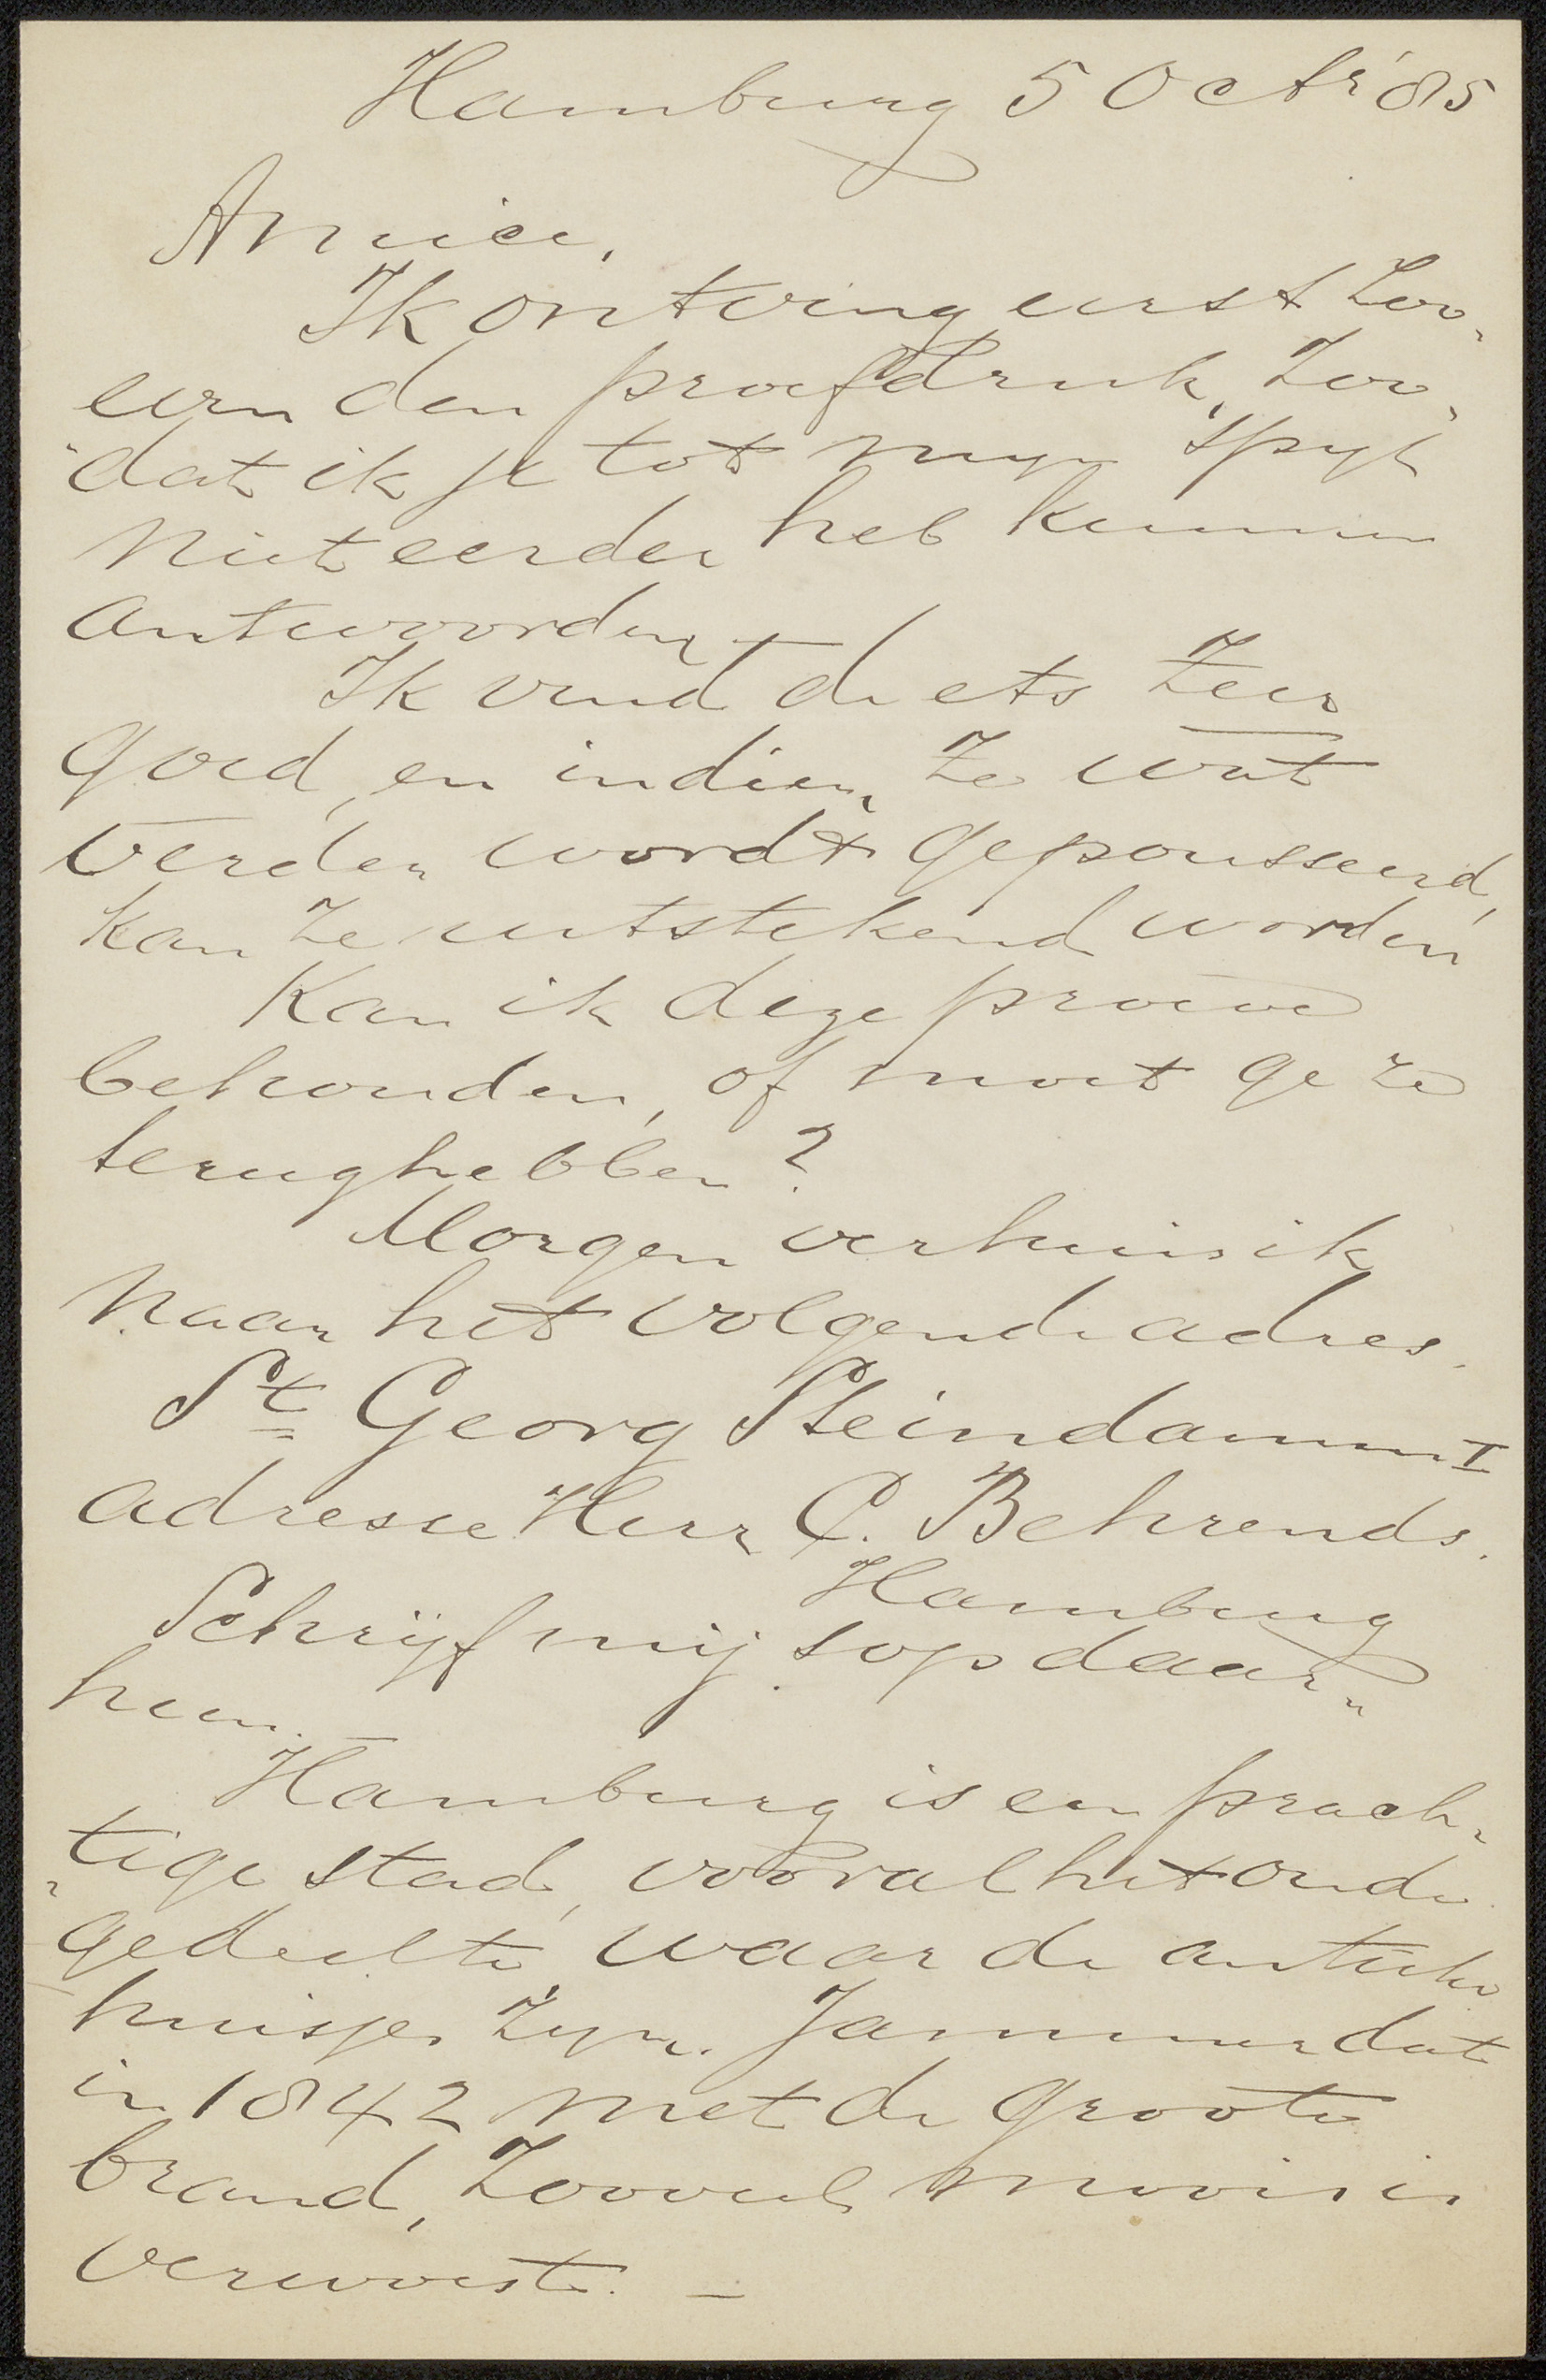 Hamburg 5 Octr '85
Amice,
Ik ontving eerst zoo„
even den proefdruk, zoo„
„dat ik je tot myn spyt
niet eerder heb kunnen
antwoorden –
Ik vind de ets zeer
goed, en indien ze wat
verder wordt gepousseerd,
kan ze uitstekend worden
Kan ik deze proeve
behouden, of moet ge ze
terughebben?
Morgen verhuis ik
naar het volgende adres.
St Georg Steindamm I
adresse Herr C. Behrends.
Hamburg
Schrijf mij sop daar„
heen. –
Hamburg is een prach„
„tige stad, vooral het oude
gedeelte, waar de antieke
huisjes zyn. Jammer dat
in 1842 met de groote
brand, zooveel moois is
verwoest. –